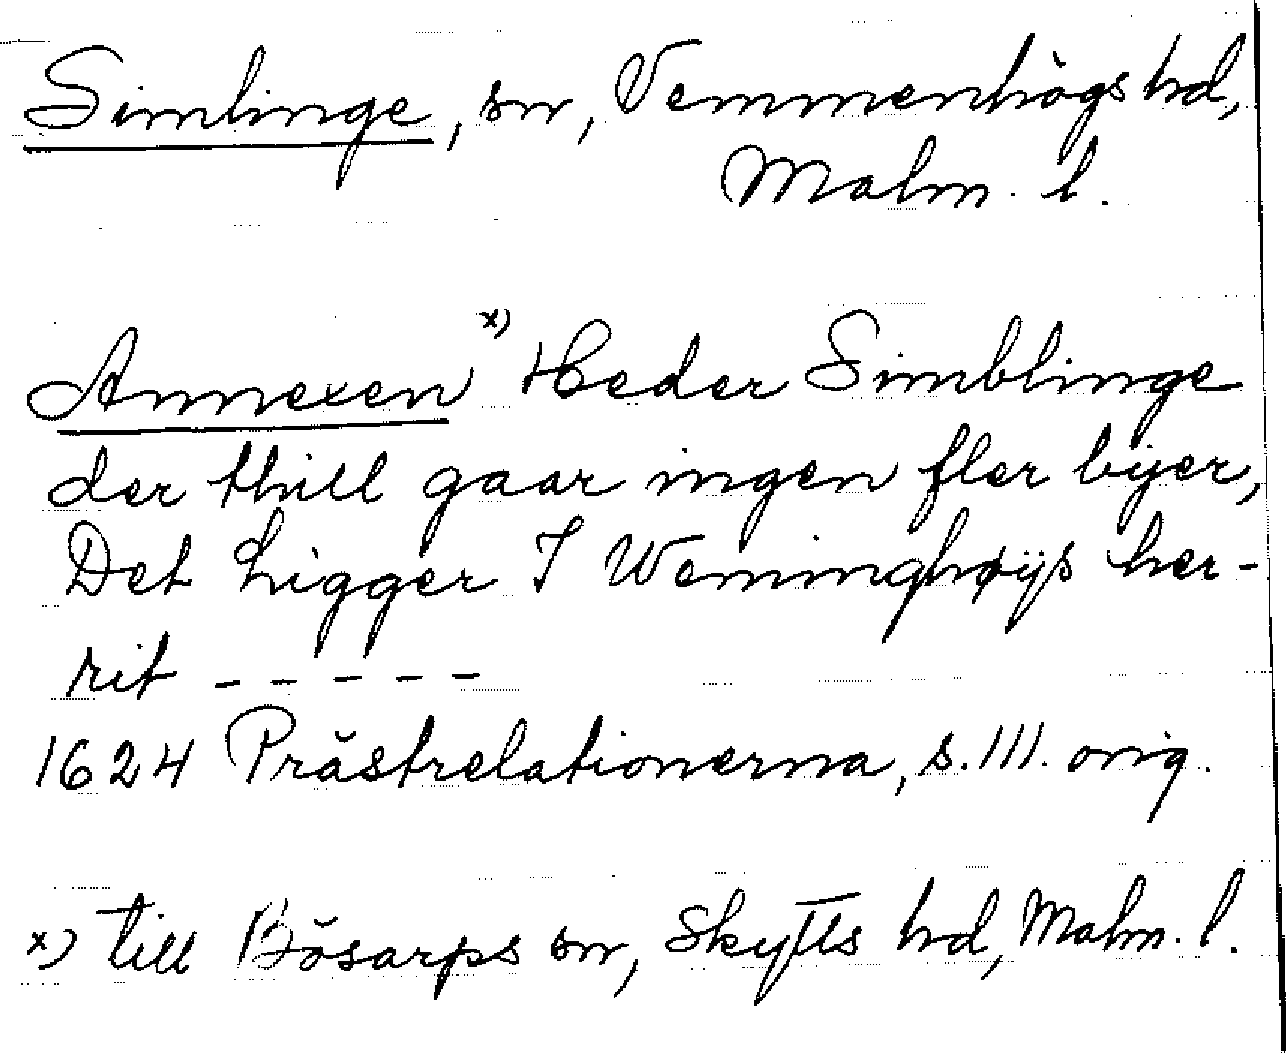 Simlinge, sn, Vemmenhögs hd,
Malm. l.
Annexen x) Heder Simblinge
der thill gaar ingen fler byer,
Det Ligger I Weminghøÿs her-
rit - - - - -
1624 Prästrelationerna, s. III. orig.
x) till Bösarps sn, Skytts hd, Malm. l.